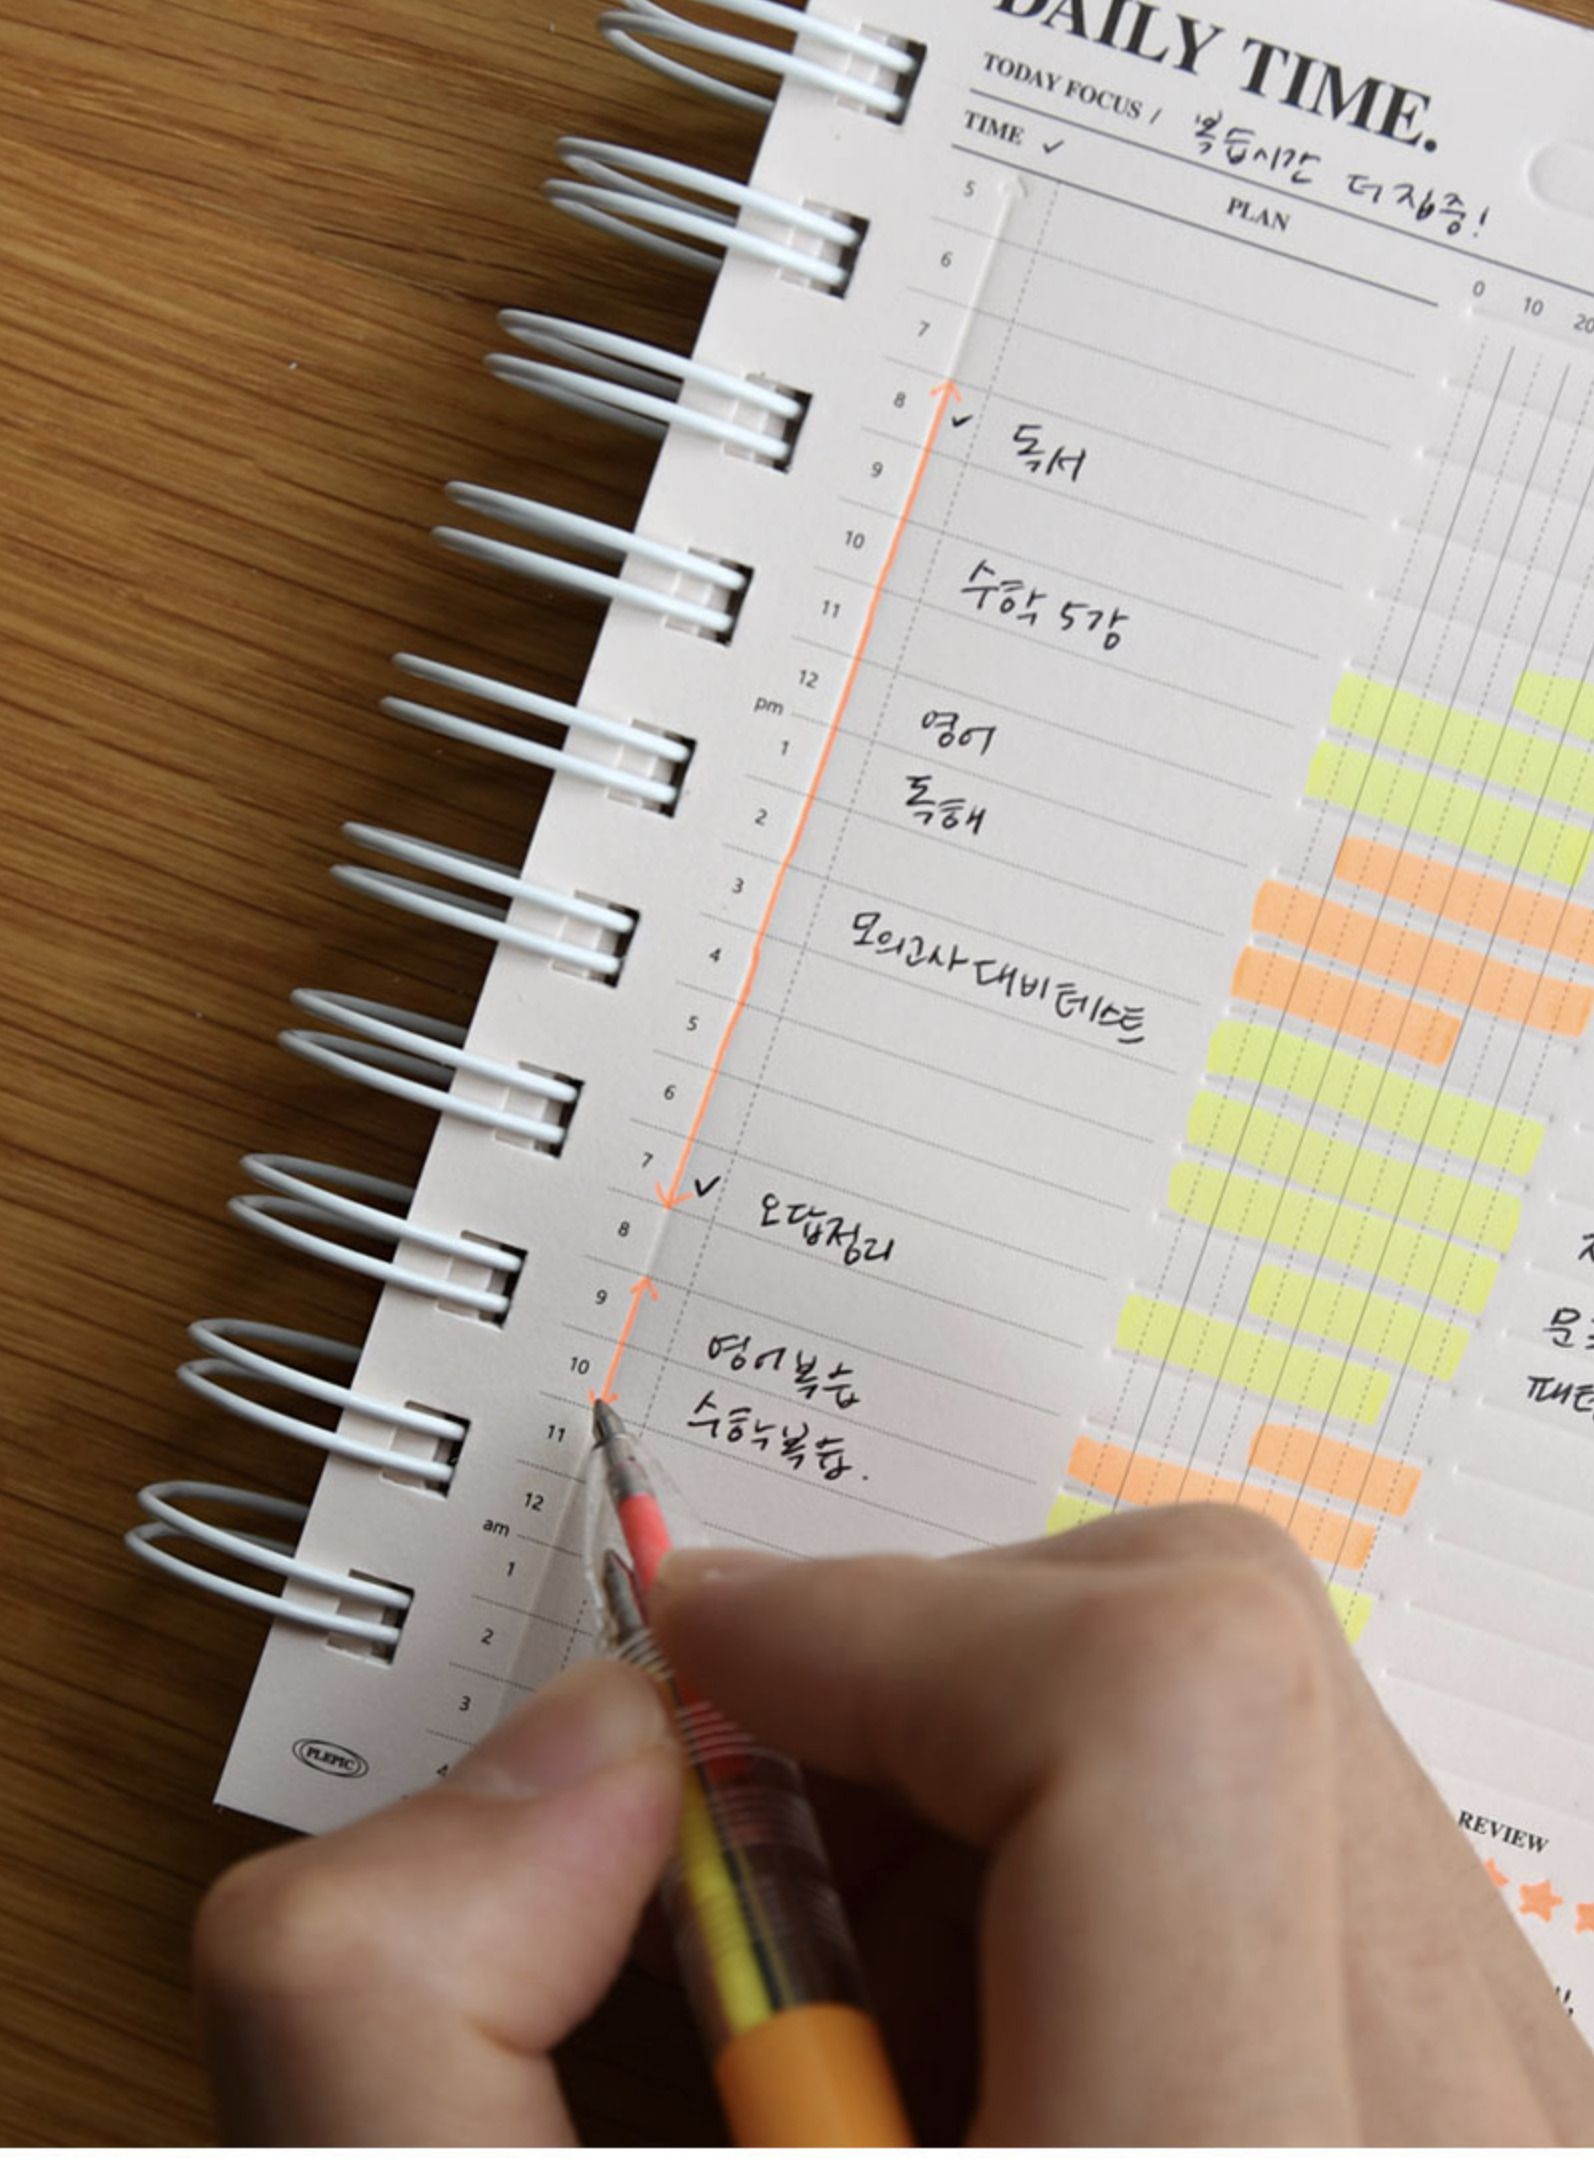 DAILY TIME.
TODAY FOCUS / 복습시간 더 집중!
TIME ✓ PLAN
0 10 20
5
6
7
8 ✓ 독서
9
10
11 수학 5강
12
pm
1 영어
2 독해
3
4 모의고사 대비 테스트
5
6
7 ✓
8 오답정리
9
10 영어복습
11 수학복습.
12
am
1
2
3
4
PLEPIC
REVIEW